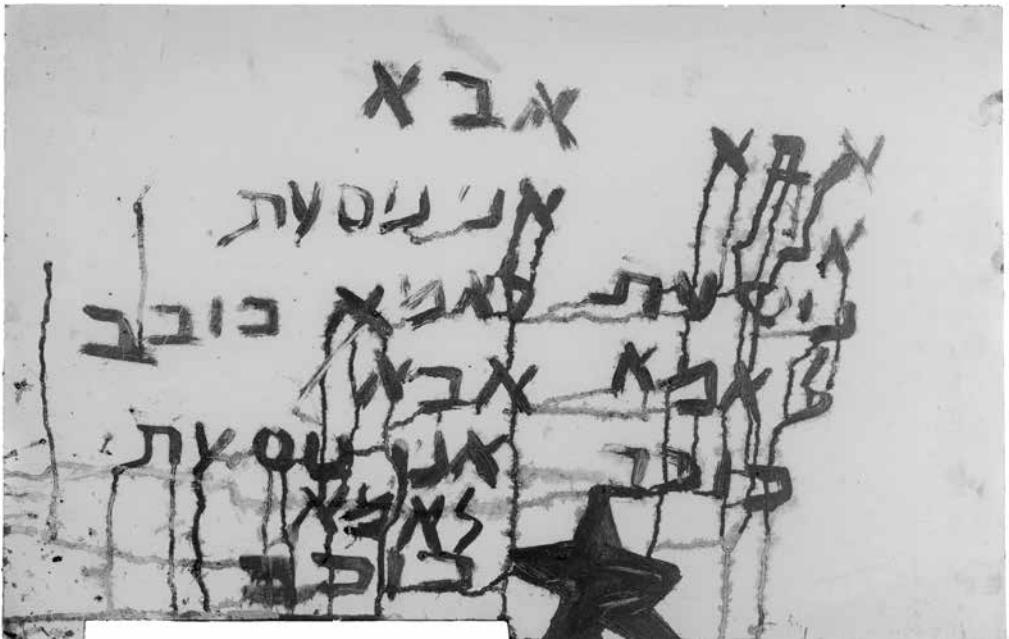 אבא
אני נוסעת
לאמא כוכב
אבא
אני נוסעת
לאמא
כוכב
אבא
נוסעת
לאמא
כוכב